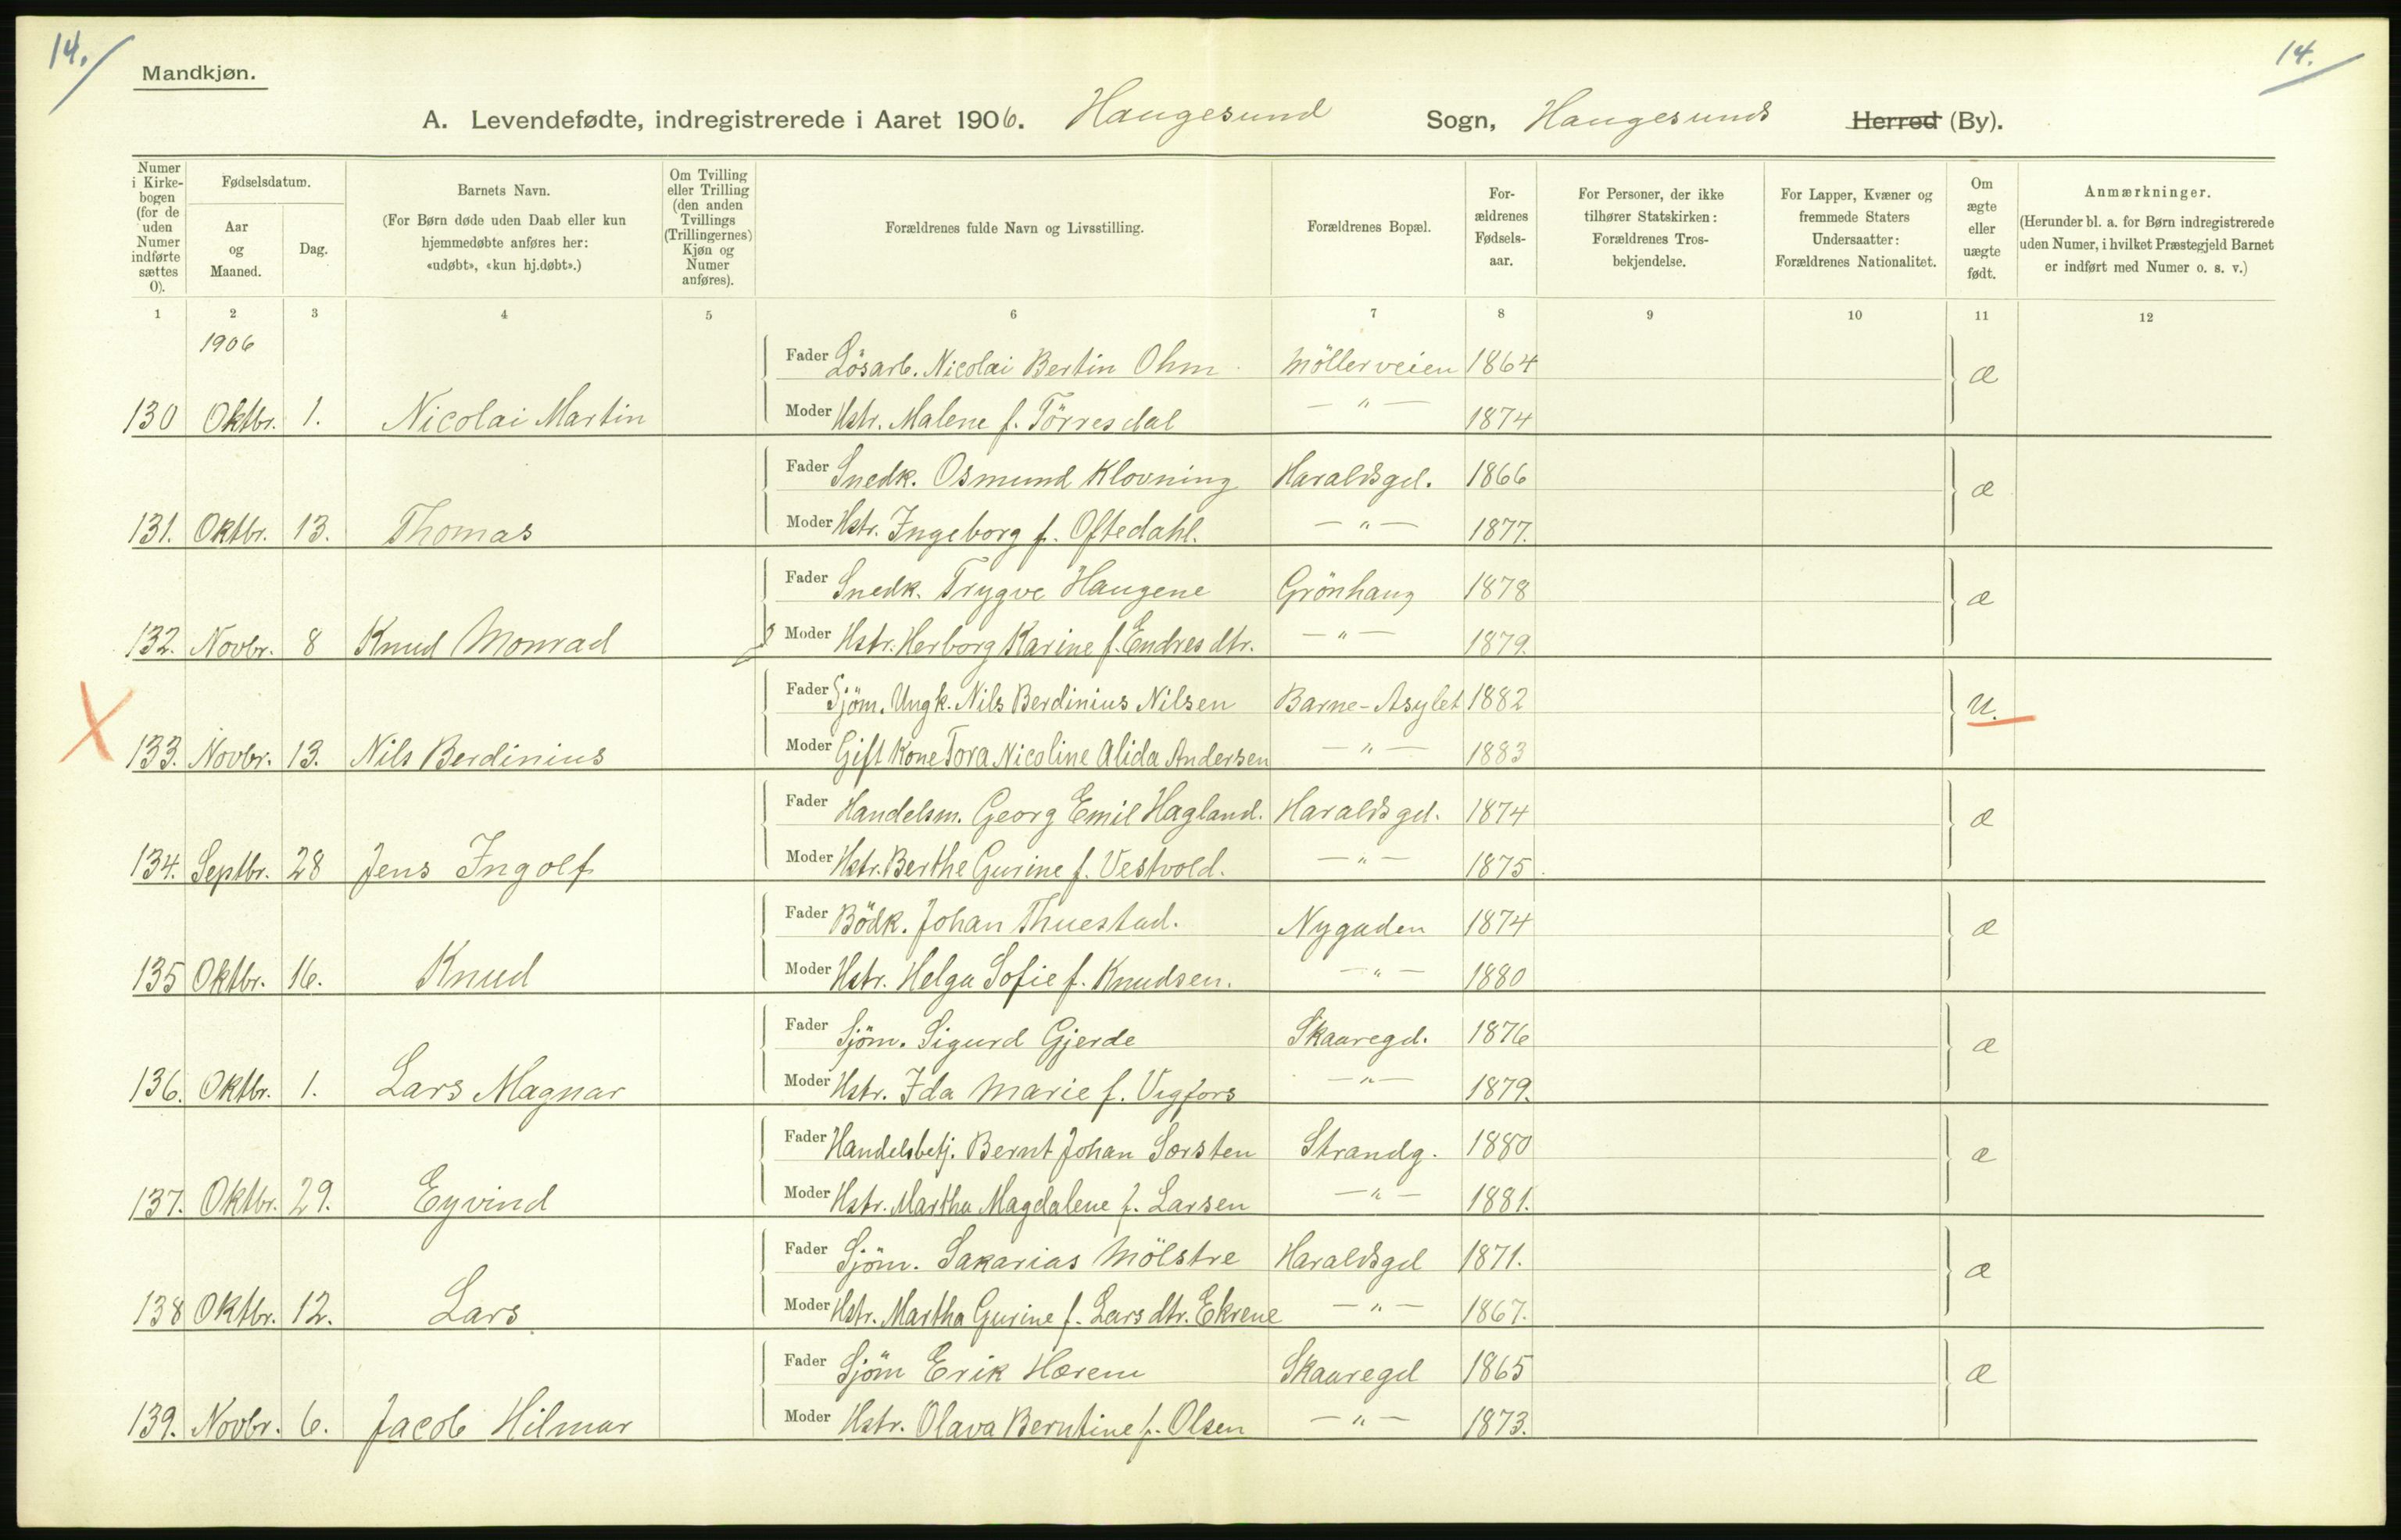 14.
14.
Mandkjøn.
A. Levendefødte, indregistrerede i Aaret 1906. Haugesund Sogn, Haugesunds Herred (By).
Numer i Kirke-bogen (for de uden Numer indførte sættes 0).
Fødselsdatum.
Aar og Maaned.
Dag.
Barnets Navn.
(For Børn døde uden Daab eller kun hjemmedøbte anføres her: «udøbt», «kun hj.døbt».)
Om Tvilling eller Trilling (den anden Tvillings (Trillingernes) Kjøn og Numer anføres).
Forældrenes fulde Navn og Livsstilling.
Forældrenes Bopæl.
For-ældrenes Fødsels-aar.
For Personer, der ikke tilhører Statskirken: Forældrenes Tros-bekjendelse.
For Lapper, Kvæner og fremmede Staters Undersaatter: Forældrenes Nationalitet.
Om ægte eller uægte født.
Anmærkninger.
(Herunder bl. a. for Børn indregistrerede uden Numer, i hvilket Præstegjeld Barnet er indført med Numer o. s. v.)
1 2 3 4 5 6 7 8 9 10 11 12
1906
Fader Lösarb. Nicolai Bertin Ohm Möllerveien 1864 æ
130 Oktbr. 1. Nicolai Martin Moder Hstr. Malene f. Törresdal — " — 1874
Fader Snedk. Osmund Klovning Haraldsgd. 1866 æ
131. Oktbr. 13. Thomas Moder Hstr. Ingeborg f. Oftedahl. — " — 1877.
Fader Snedk. Trygve Haugene Grönhaug 1878 æ
132. Novbr. 8 Knud Monrad Moder Hstr. Herborg Karine f. Endresdtr. — " — 1879.
Fader Sjöm. Ungk. Nils Berdinius Nilsen Barne-Asylet 1882 u.
133. Novbr. 13. Nils Berdinius Moder Gift Kone Tora Nicoline Alida Andersen — " — 1883
Fader Handelsm. Georg Emil Hagland. Haraldsgd. 1874 æ
134. Septbr. 28 Jens Ingolf Moder Hstr. Berthe Gurine f. Vestvold. — " — 1875
Fader Bödk. Johan Thuestad. Nygaden 1874 æ
135 Oktbr. 16. Knud Moder Hstr. Helga Sofie f. Knudsen. — " — 1880
Fader Sjöm. Sigurd Gjerde Skaaregd. 1876 æ
136. Oktbr. 1. Lars Magnar Moder Hstr. Ida Marie f. Vigfors — " — 1879.
Fader Handelsbetj. Bernt Johan Sørsten Strandg. 1880 æ
137. Oktbr. 29. Eyvind Moder Hstr. Martha Magdalene f. Larsen — " — 1881.
Fader Sjöm. Sakarias Mölstre Haraldsgd 1871. æ
138 Oktbr. 12. Lars Moder Hstr. Martha Gurine f. Larsdtr. Ekrene — " — 1867.
Fader Sjöm Erik Hærem Skaaregd 1865 æ
139. Novbr. 6. Jacob Hilmar Moder Hstr. Olava Berntine f. Olsen — " — 1873.